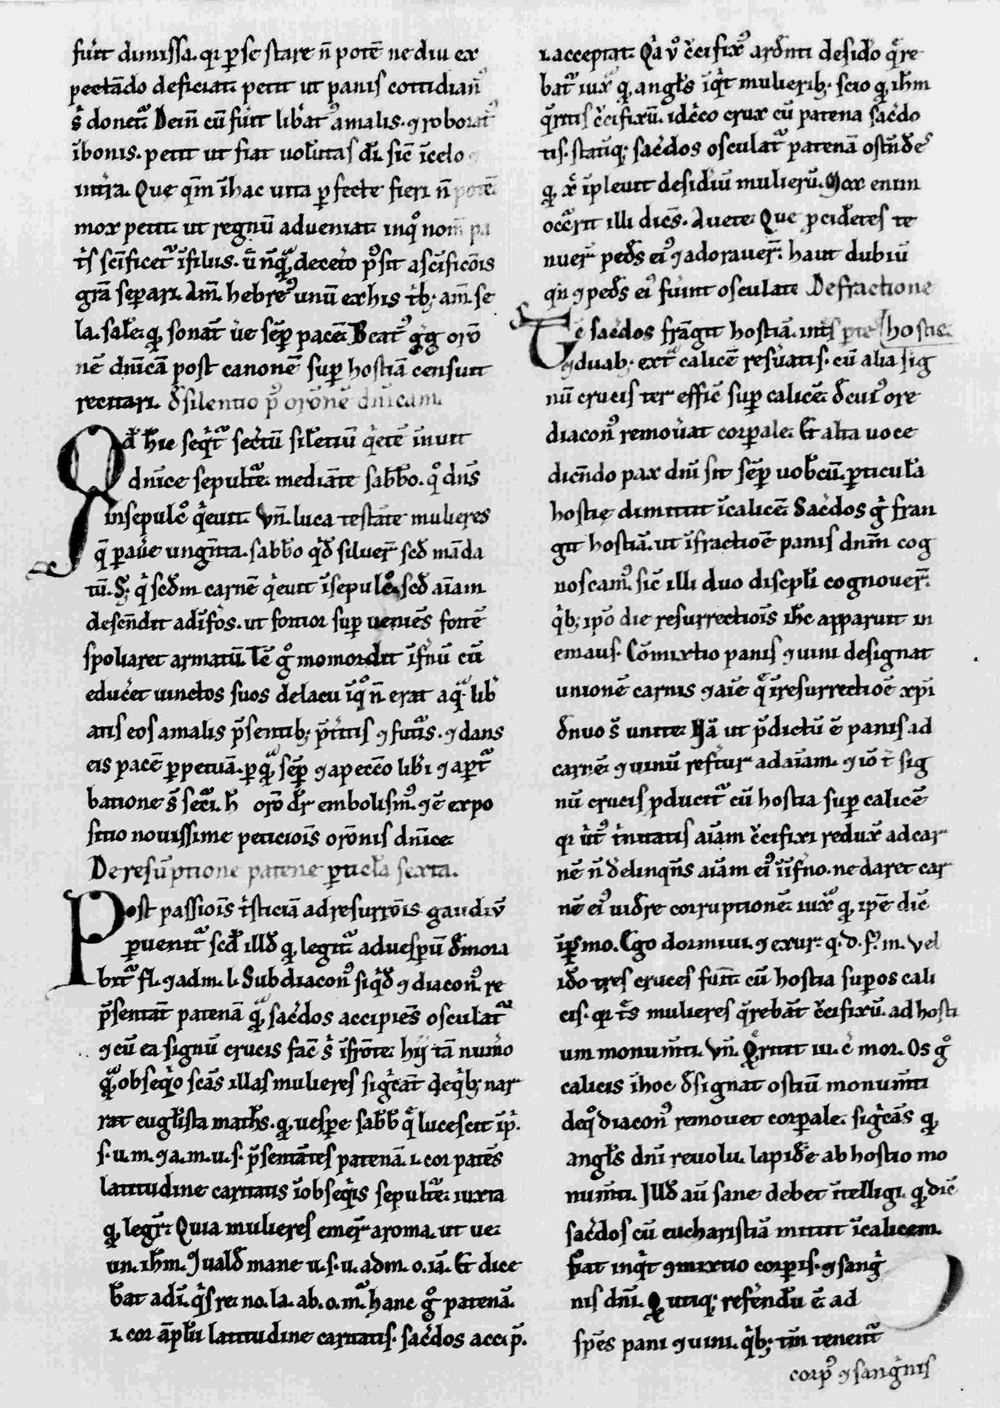 fuit dimissa. qi p̱ se stare n̄ potē ne diu ex
pectādo deficiat. petit ut panis cottidian᷒
s̄ donet᷑. Dein̄ cū fu̾it liberat᷒ amalis. ⁊ roborat᷒
ī bonis. petit ut fiat uolūtas dī. sic̄ ī celo ⁊
in t̾ra. Que qm̄ ī hac uita p̱fecte fieri n̄ potē
mox petit. ut regnū adueniat. inq᷒ nom̄ pa
t͛s sc̄ificet᷑ ī filiis. ū nq̄ decet᷒o p᷒sit a sc̄ificōis
gr̄a sep̱ari. Am̄. hebre᷒ unū ex his t͛b; am̄. se
la. sale. q; sonat̄ ue sēp̱ pacē. Beat᷒ g̾g orō
nē dn̄icā post canonē sup̱ hostiā censuit
recitari. d̄ silentio p᷒ orōne dn̄icam.
Qd̄ hic seq̾t᷑ sec̾tū silētiū q͛etē īnuit
dn̄ice sepulte᷑. mediāte sabb̄o. q᷒ dn̄s
in sepulc᷒ q͛euit. Vn̄. luca testāte mulieres
q̄ paue᷑ ungn̄ta. sabb̄o q͛d̄ siluer̄ sc̄d māda
tū. S; q͛ sc̄dm carnē q͛euit ī sepulc᷒. sc̄d aīam
descēdit ad īfōs. ut fortior sup̱ueniēs fortē
spoliaret armatū. Tc̄ g᷒ momordit īfnū cū
educ̾et uinctos suos de lacu ī q᷒ n̄ erat aq᷑. lib̾
ans eos a malis p̄sentib; p̄t͛itis ⁊ fut͛is. ⁊ dans
eis pacē p̱petuā. p̱ q᷑ sēp̱ ⁊ a pecc̄o lib̾i ⁊ a p̱t᷑
batione s̄ sec̾i. h̄ orō dr̄ embolism᷒. ⁊ ē expo
sitio nouissime peticiōis orōnis dn̄ice
De resūptione patene p̱ticl̄a sexta.
Post passiōis t͛sticiā ad resurrōis gaudiū
p̱uenit᷑ sc̄d illd̄ q; legit᷑ ad uesp̱ū dīmora
bit᷑ fl̄. ⁊ ad m. l. Subdiacon᷒ siq͛d̄ ⁊ diacon᷒ re
p̄sentāt patenā q᷑ sac̾dos accipiēs osculat᷑
⁊ cū ea signū crucis faē s͛ ī frōte. hij tā nūo
q᷑ obseq͛o sc̄as illas mulieres sig͛cāt de q͛b; nar
rat eugl̄ista math̄s. q; uesp̱e sabb̄ q̄ lucescit ī p͛.
s. u. m. ⁊ a. m. u. s. p̄sentātes patenā. i. cor patēs
latitudine caritatis ī obseq͛is sepulte᷑. iuxta
q; legit᷑. Quia mulieres emer̄ aroma. ut ue.
un. ihm̄. ⁊ uald̄ mane u. s. u. ad m. o. iā. Et dice
b̄at ad ī. q͛s re. no. la. ab. o. m᷑. hanc g᷒ patenā.
i. cor āpl̄ū latitudine caritatis. sac̾dos accip͛.
i. acceptat. Q͛a u᷒ c̾cifix᷒ ardn̄ti desid̾o q̄re
bat᷑ iux᷑ q; angl̄s īq͛t mulierib; scio q; ihm̄
q̄ritis c̾cifixū. idc̄co crux cū patena sac̾do
tis. statīq; sac̾dos osculat᷑ patenā ostn̄de᷒
q; xp̄ ī pleuit desid̾iū mulierū. Mox enim
occ̾rit illi dicēs. Auete. Que p̱cidētes te
nuer̄ ped̄s ei᷒ ⁊ adorauer̄. haut dubiū
qn̄ ⁊ ped̄s ei᷒ fu̾int osculate. De fractione
Tc̄ sac̾dos frāgit hostiā. int͛s p̱te hostie
⁊ duab; ext᷑ calicē res̾uatis. cū alia sig
nū crucis ter effic̄ sup̱ calicē. d̄ cui᷒ ore
diacon᷒ remou̾at corp̱ale. Et alta uoce
dicn̄do pax dn̄i sit sēp̱ uob̄cū. p̱ticul̄a
hostie dimittit ī calicē. Sac̾dos g᷒ fran
git hostiā. ut ī fractiōe panis dnm̄ cog
noscam᷒. sic̄ illi duo discipl̄i cognouer̄.
q͛b; ip̄o die resurrectiōis ihc̄ apparuit in
emaus. Cōmixtio panis ⁊ uini designat
unionē carnis ⁊ aīe q̄ ī resurrectiōe xp̄i
dn̄uo s̄ unite. Nā ut p̄dictū ē panis ad
carnē. ⁊ uinū refertur ad aīam. ⁊ iō t͛ sig
nū crucis p̱ducit᷑ cū hostia sup̱ calicē
qi u͛t᷒ t͛nitatis aīam c̾cifixi redux͛ ad car
nē n̄ d̾elinqn̄s aīam ei᷒ ī īfno. ne daret car
nē ei᷒ uid̾e corruptionē. iux᷑ q; ip̄e dic̄
ī ps̄mo. Ego dormiui. ⁊ exur. q. d. s. m. Vel
id̾o tres cruces fiunt cū hostia sup̱ os cali
cis. qi t͛s mulieres q̄rebāt c̾cifixū. ad hosti
um monum̄ti. Vn̄. Q̄ritat iii. c̾ mor. Os g᷒
calicis ī hoc d̾signat ostiū monum̄ti
de q᷒ diacon᷒ remouet corp̱ale. sig͛cās q;
angl̄s dn̄i reuolu. lapid̾e ab hostio mo
num̄ti. Illd̄ aū sane debet ītelligi. q; dic̄
sac̾dos cū eucharistiā mittit ī calicem.
fiat inq͛t ⁊mixtio corp̱is. ⁊ sang͛
nis dn̄i. Q; utiq; refe͛ndū ē. ad
sp̄es pani ⁊ uini. q͛b; tm̄ tenent᷑
corp᷒ ⁊ sang͛nis